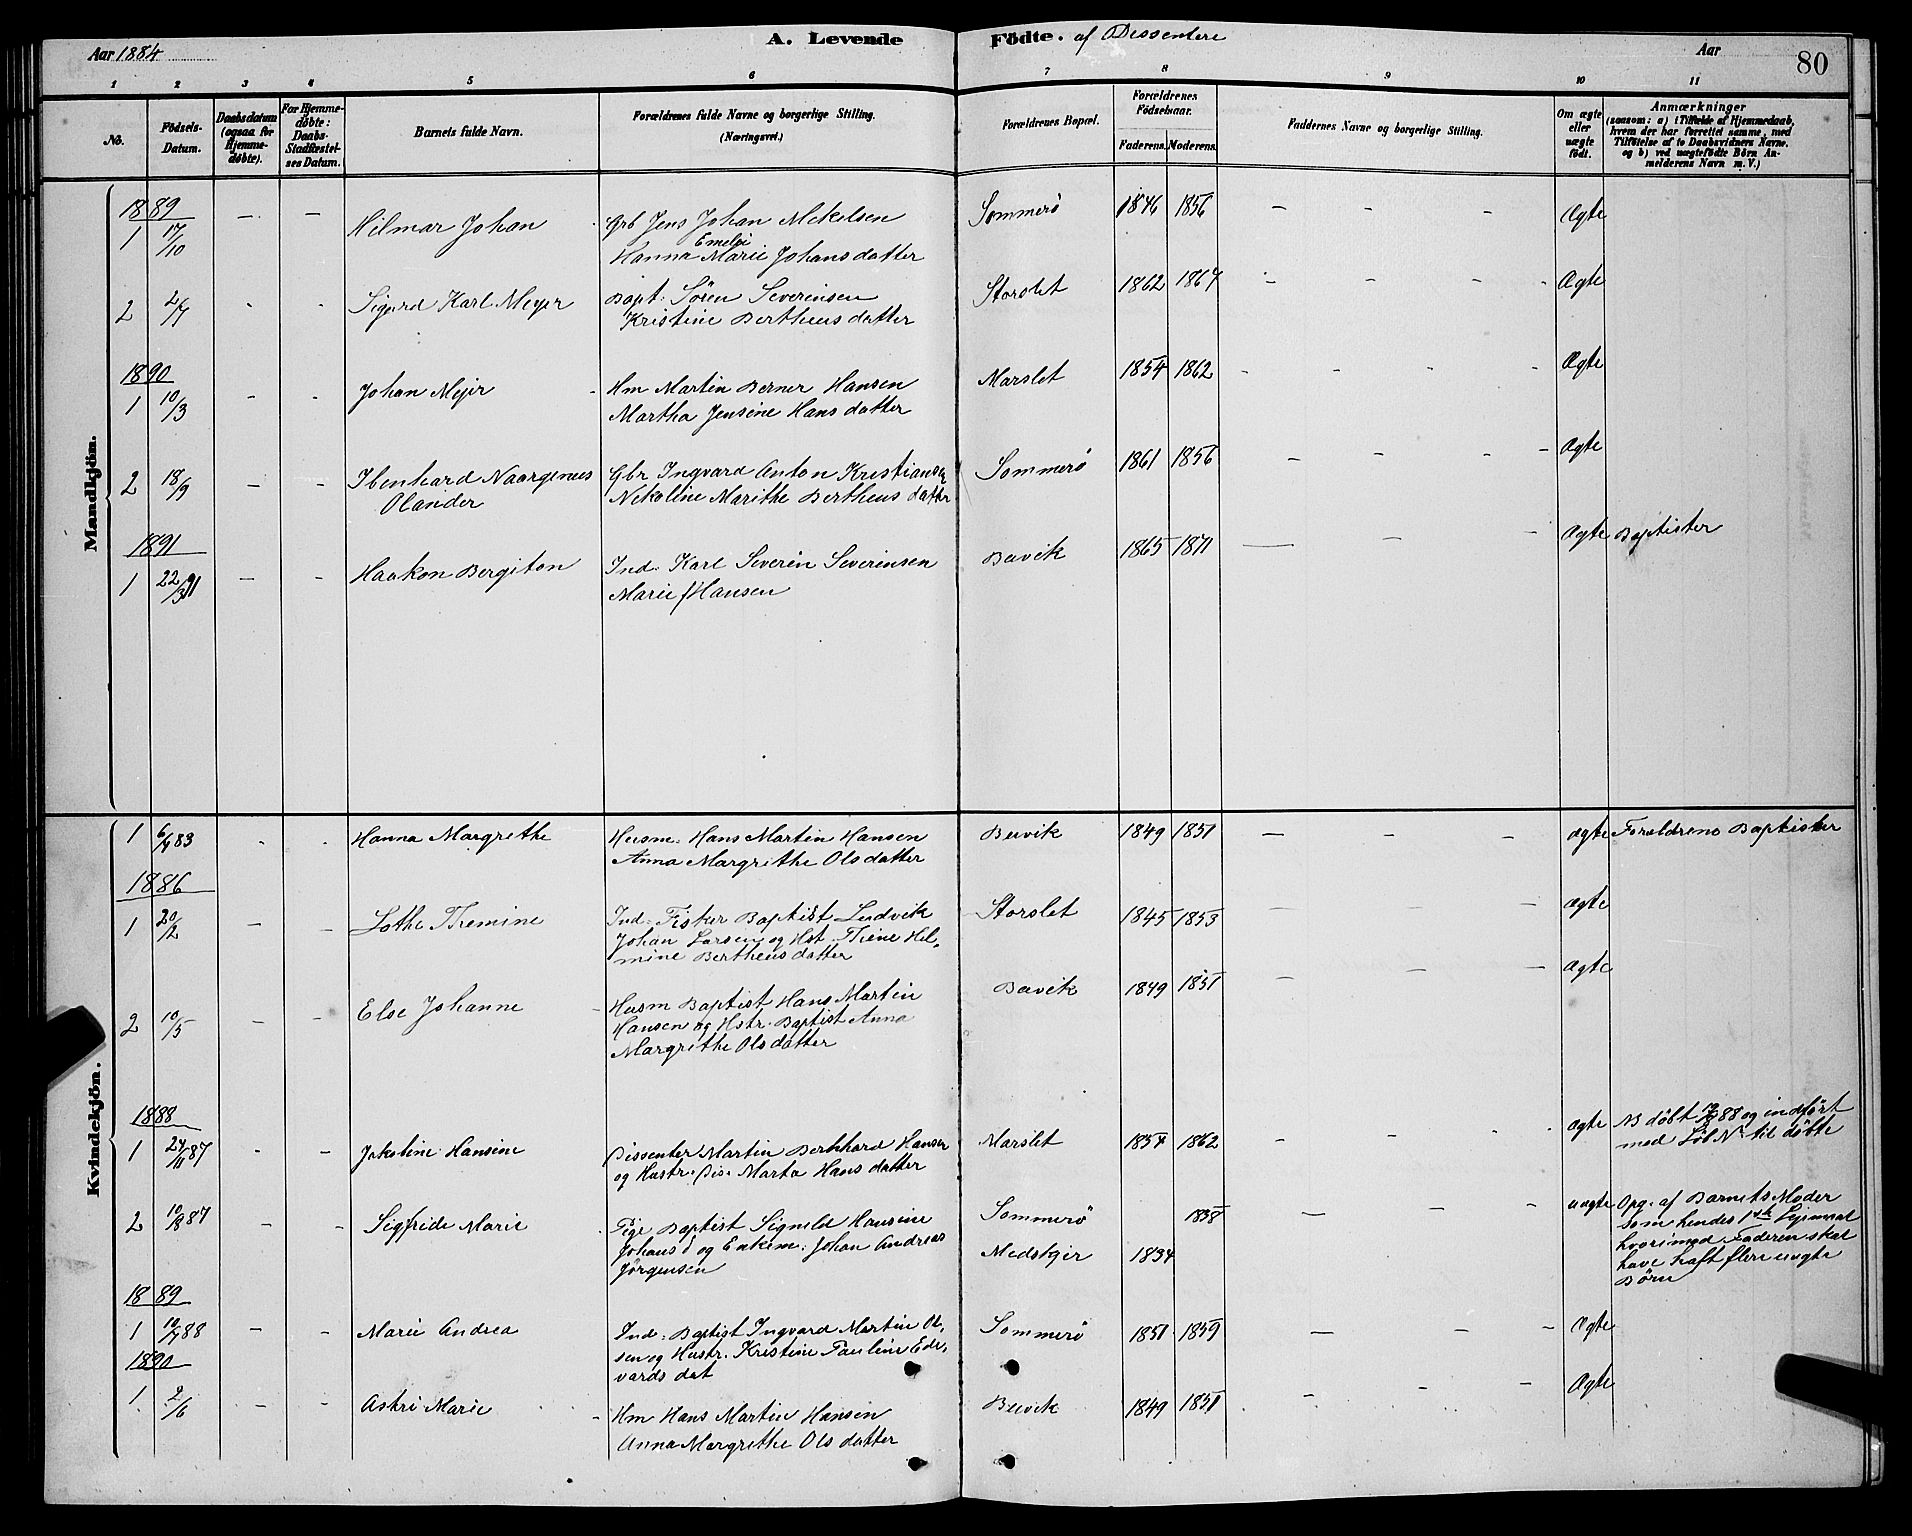 Aar 1884
A. Levende Födte. af Dissentere
Aar
80
1 2 3 4 5 6 7 8 9 10 11
No.
Födsels-Datum.
Daabsdatum (ogsaa for Hjemme-döbte).
For Hjemme-döbte: Daabs-Stadfæstel-ses Datum.
Barnets fulde Navn.
Forældrenes fulde Navne og borgerlige Stilling. (Næringsvei.)
Forældrenes Bopæl.
Forældrenes Födselsaar.
Faderens. Moderens.
Faddernes Navne og borgerlige Stilling.
Om ægte eller uægte födt.
Anmærkninger
(saasom: a) i Tilfælde af Hjemmedaab,
hvem der har forrettet samme, med
Tilföielse af to Daabsvidners Navne.
og b) ved uægtefödte Börn An-
melderens Navn m. V.)
Mandkjön.
1889
1 17/10 - - Hilmar Johan Grb Jens Johan Mekelsen Sommerö 1846 1856 - - - Ægte
Emelie
Hanna Marie Johansdatter
2 2/7 - - Sigurd Karl Meyer Bapt: Sören Severinsen Storslet 1862 1867 - - - - Ægte
Kristine Bertheusdatter
1890
1 10/3 - - Johan Mejer - Hm Martin Berner Hansen Marslet 1854 1862 - - - - Ægte
Martha Jensine Hansdatter
2 18/9 - - Ibenhard Naargenues Gbr Ingvard Anton Kristiansen Sommerö 1861 1856 - - - - Ægte
Olander Nekoline Marithe Bertheusdatter
1891
1 22/3 91 - - Haakon Bergiton Ind. Karl Severin Severinsen Buvik 1865 1871 - - - Ægte Baptister
Marie Hansen
Kvindekjön.
1 6/4 83 - - Hanna Margrethe Husm. Hans Martin Hansen Buvik 1849 1851 - - - ægte Forældrene Baptister
Anna Margrethe Olsdatter
1886
1 20/2 - - Lothe Themine Ind. Fisker Baptist Ludvik Storslet 1845 1853 - - - Ægte
Johan Larsen og Hst. Thine Hel-
mine Bertheusdatter
2 10/5 - - Else Johanne - Husm Baptist Hans Martin Buvik 1849 1851 - - - Ægte
Hansen og Hstr. Baptist Anna
Margrethe Olsdatter
1888
1 24/11 87 - - Jakoline Hansine Dissenter Martin Bernhard Hansen Marslet 1854 1862 - - - - ægte NB döbt 88 og indført
og Hustr. Dis. Marta Hansdatter med Löb N til döbte
2 10/8 87 - - Sigfride Marie Pige Baptist Signelde Hansine Sommerö 1858 - - - uægte Opg. af Barnets Moder
Johans D og Enkem. Johan Andreas Medskjer 1834 som hendes 1ste Lejermaal
Jörgensen hvorimod Faderen skal
have haft flere uægte
Börn
1889
1 10/7 88 - - Marie Andrea Ind. Baptist Ingvard Martin Ol- Sommerö 1851 1859 - - - Ægte
sen og Hustr. Kristine Pauline Ed-
vardsdat
1890
1 2/6 - - Astri Marie - Hm Hans Martin Hansen Buvik 1849 1851 - - - Ægte
Anna Margrethe Olsdatter